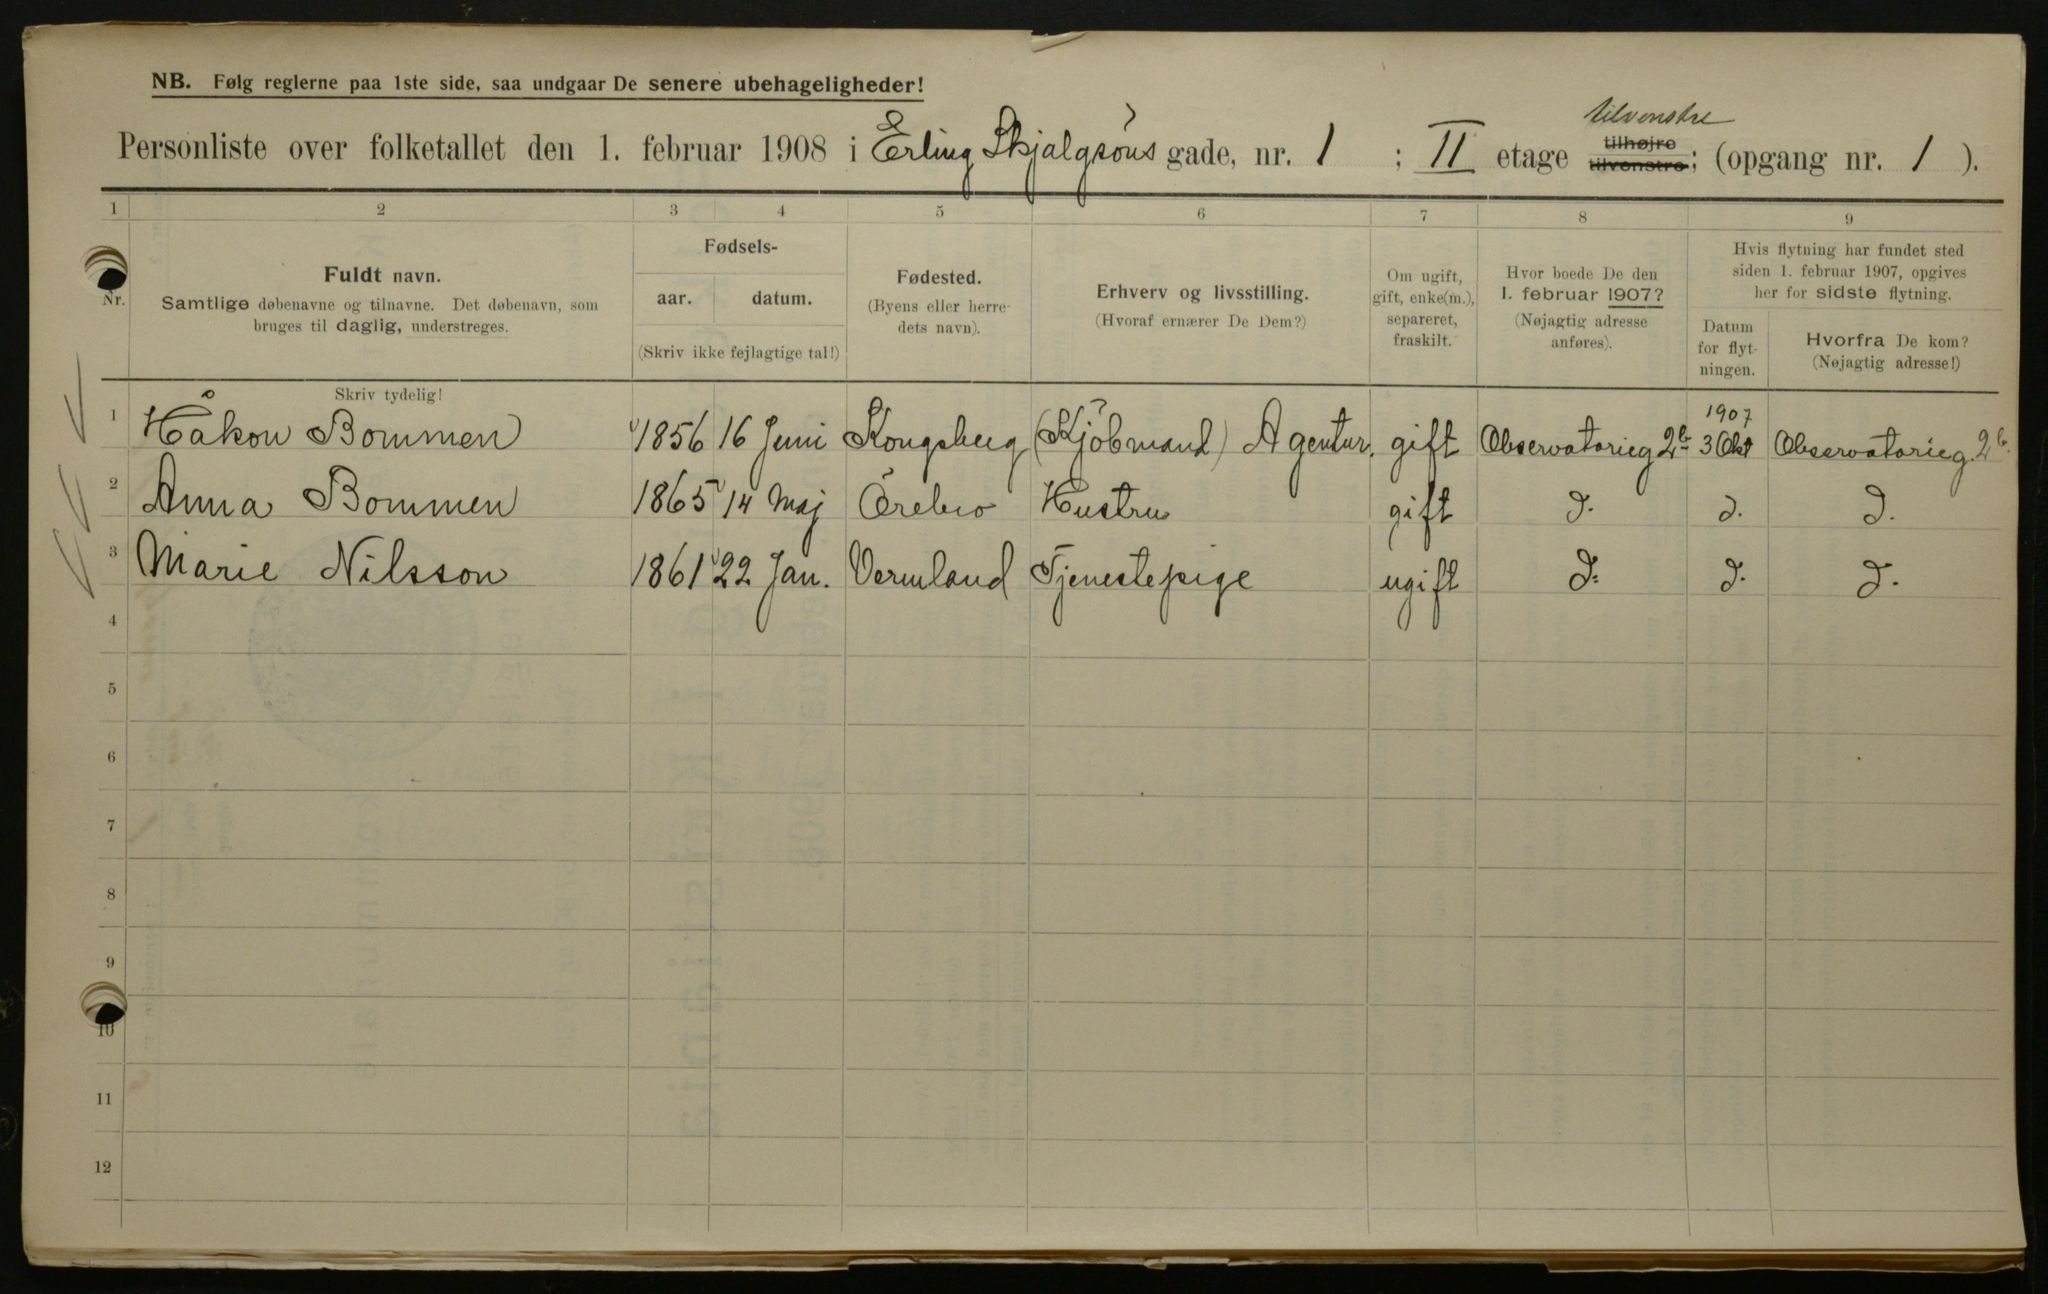 NB. Følg reglerne paa 1ste side, saa undgaar De senere ubehageligheder!
tilvenstre
Personliste over folketallet den 1. februar 1908 i Erling Skjalgsöns gade, nr. 1 ; II etage tilhøjre tilvenstre; (opgang nr. 1 ).
1 2 3 4 5 6 7 8 9
Nr.
Fuldt navn.
Samtlige døbenavne og tilnavne. Det døbenavn, som
bruges til daglig, understreges.
Skriv tydelig!
Fødsels-
aar. datum.
(Skriv ikke fejlagtige tal!)
Fødested.
(Byens eller herre-
dets navn).
Erhverv og livsstilling.
(Hvoraf ernærer De Dem?)
Om ugift,
gift, enke(m.),
separeret,
fraskilt.
Hvor boede De den
1. februar 1907?
(Nøjagtig adresse
anføres).
Hvis flytning har fundet sted
siden 1. februar 1907, opgives
her for sidste flytning.
Datum
for flyt-
ningen.
Hvorfra De kom?
(Nøjagtig adresse!)
1907
1 Håkon Bommen 1856 16 Juni Kongsberg (Kjöbmand) Agentur. gift Observatorieg 2b 3 Okt Observatorieg. 2b.
2 Anna Bommen 1865 14 Maj Örebro Hustru gift d. d. d.
3 Marie Nilsson 1861 22 Jan. Vermland Tjenestepige ugift d. d. d.
4
5
6
7
8
9
10
11
12